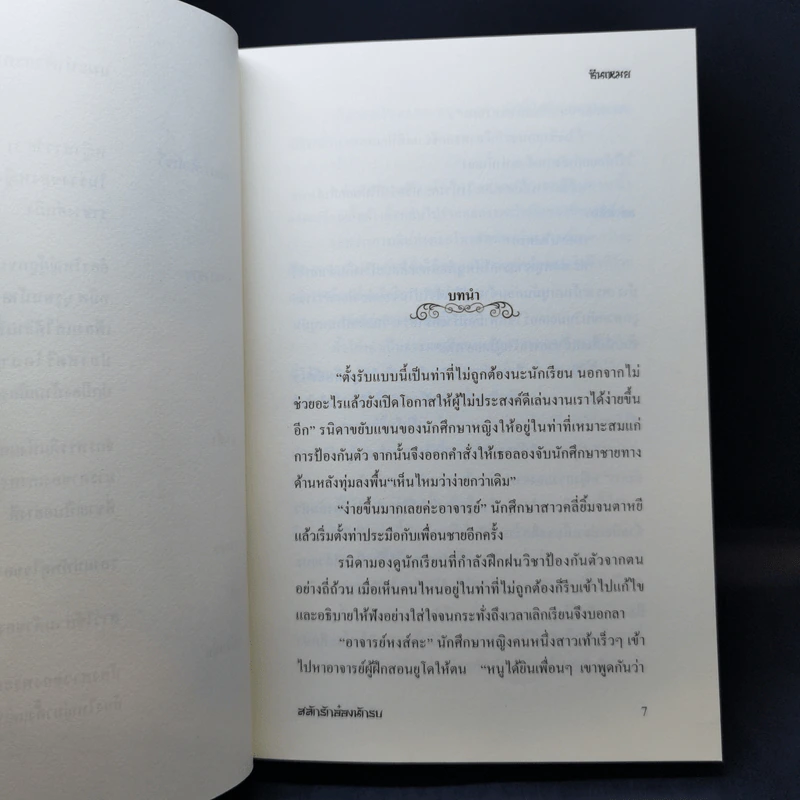 ชีนเหมย
บทนำ
“ตั้งรับแบบนี้เป็นท่าที่ไม่ถูกต้องนะนักเรียน นอกจากไม่
ช่วยอะไรแล้วยังเปิดโอกาสให้ผู้ไม่ประสงค์ดีเล่นงานเราได้ง่ายขึ้น
อีก” รนิดาขยับแขนของนักศึกษาหญิงให้อยู่ในท่าที่เหมาะสมแก่
การป้องกันตัว จากนั้นจึงออกคำสั่งให้เธอลองจับนักศึกษาชายทาง
ด้านหลังทุ่มลงพื้น“เห็นไหมว่าง่ายกว่าเดิม”
“ง่ายขึ้นมากเลยค่ะอาจารย์” นักศึกษาสาวคลี่ยิ้มจนตาหยี
แล้วเริ่มตั้งท่าประมือกับเพื่อนชายอีกครั้ง
รนิดามองดูนักเรียนที่กำลังฝึกฝนวิชาป้องกันตัวจากตน
อย่างถี่ถ้วน เมื่อเห็นคนไหนอยู่ในท่าที่ไม่ถูกต้องก็รีบเข้าไปแก้ไข
และอธิบายให้ฟังอย่างใส่ใจจนกระทั่งถึงเวลาเลิกเรียนจึงบอกลา
“อาจารย์หงส์คะ” นักศึกษาหญิงคนหนึ่งสาวเท้าเร็วๆ เข้า
ไปหาอาจารย์ผู้ฝึกสอนยูโดให้ตน “หนูได้ยินเพื่อนๆ เขาพูดกันว่า
สลักรักล้อมนักรบ
7